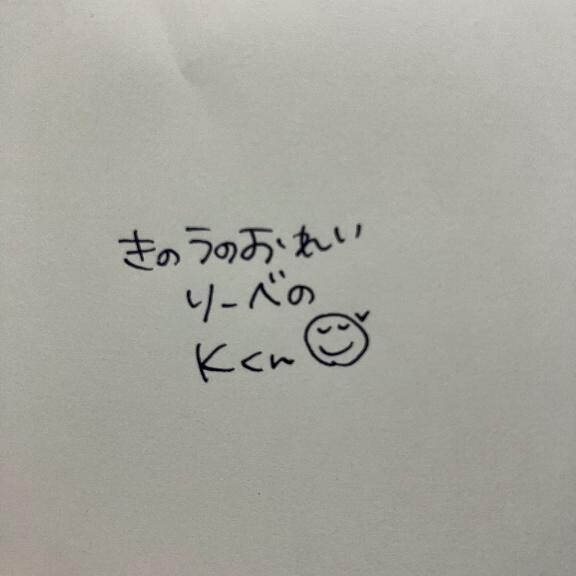 きのうのおれい
リーベの
Kくん